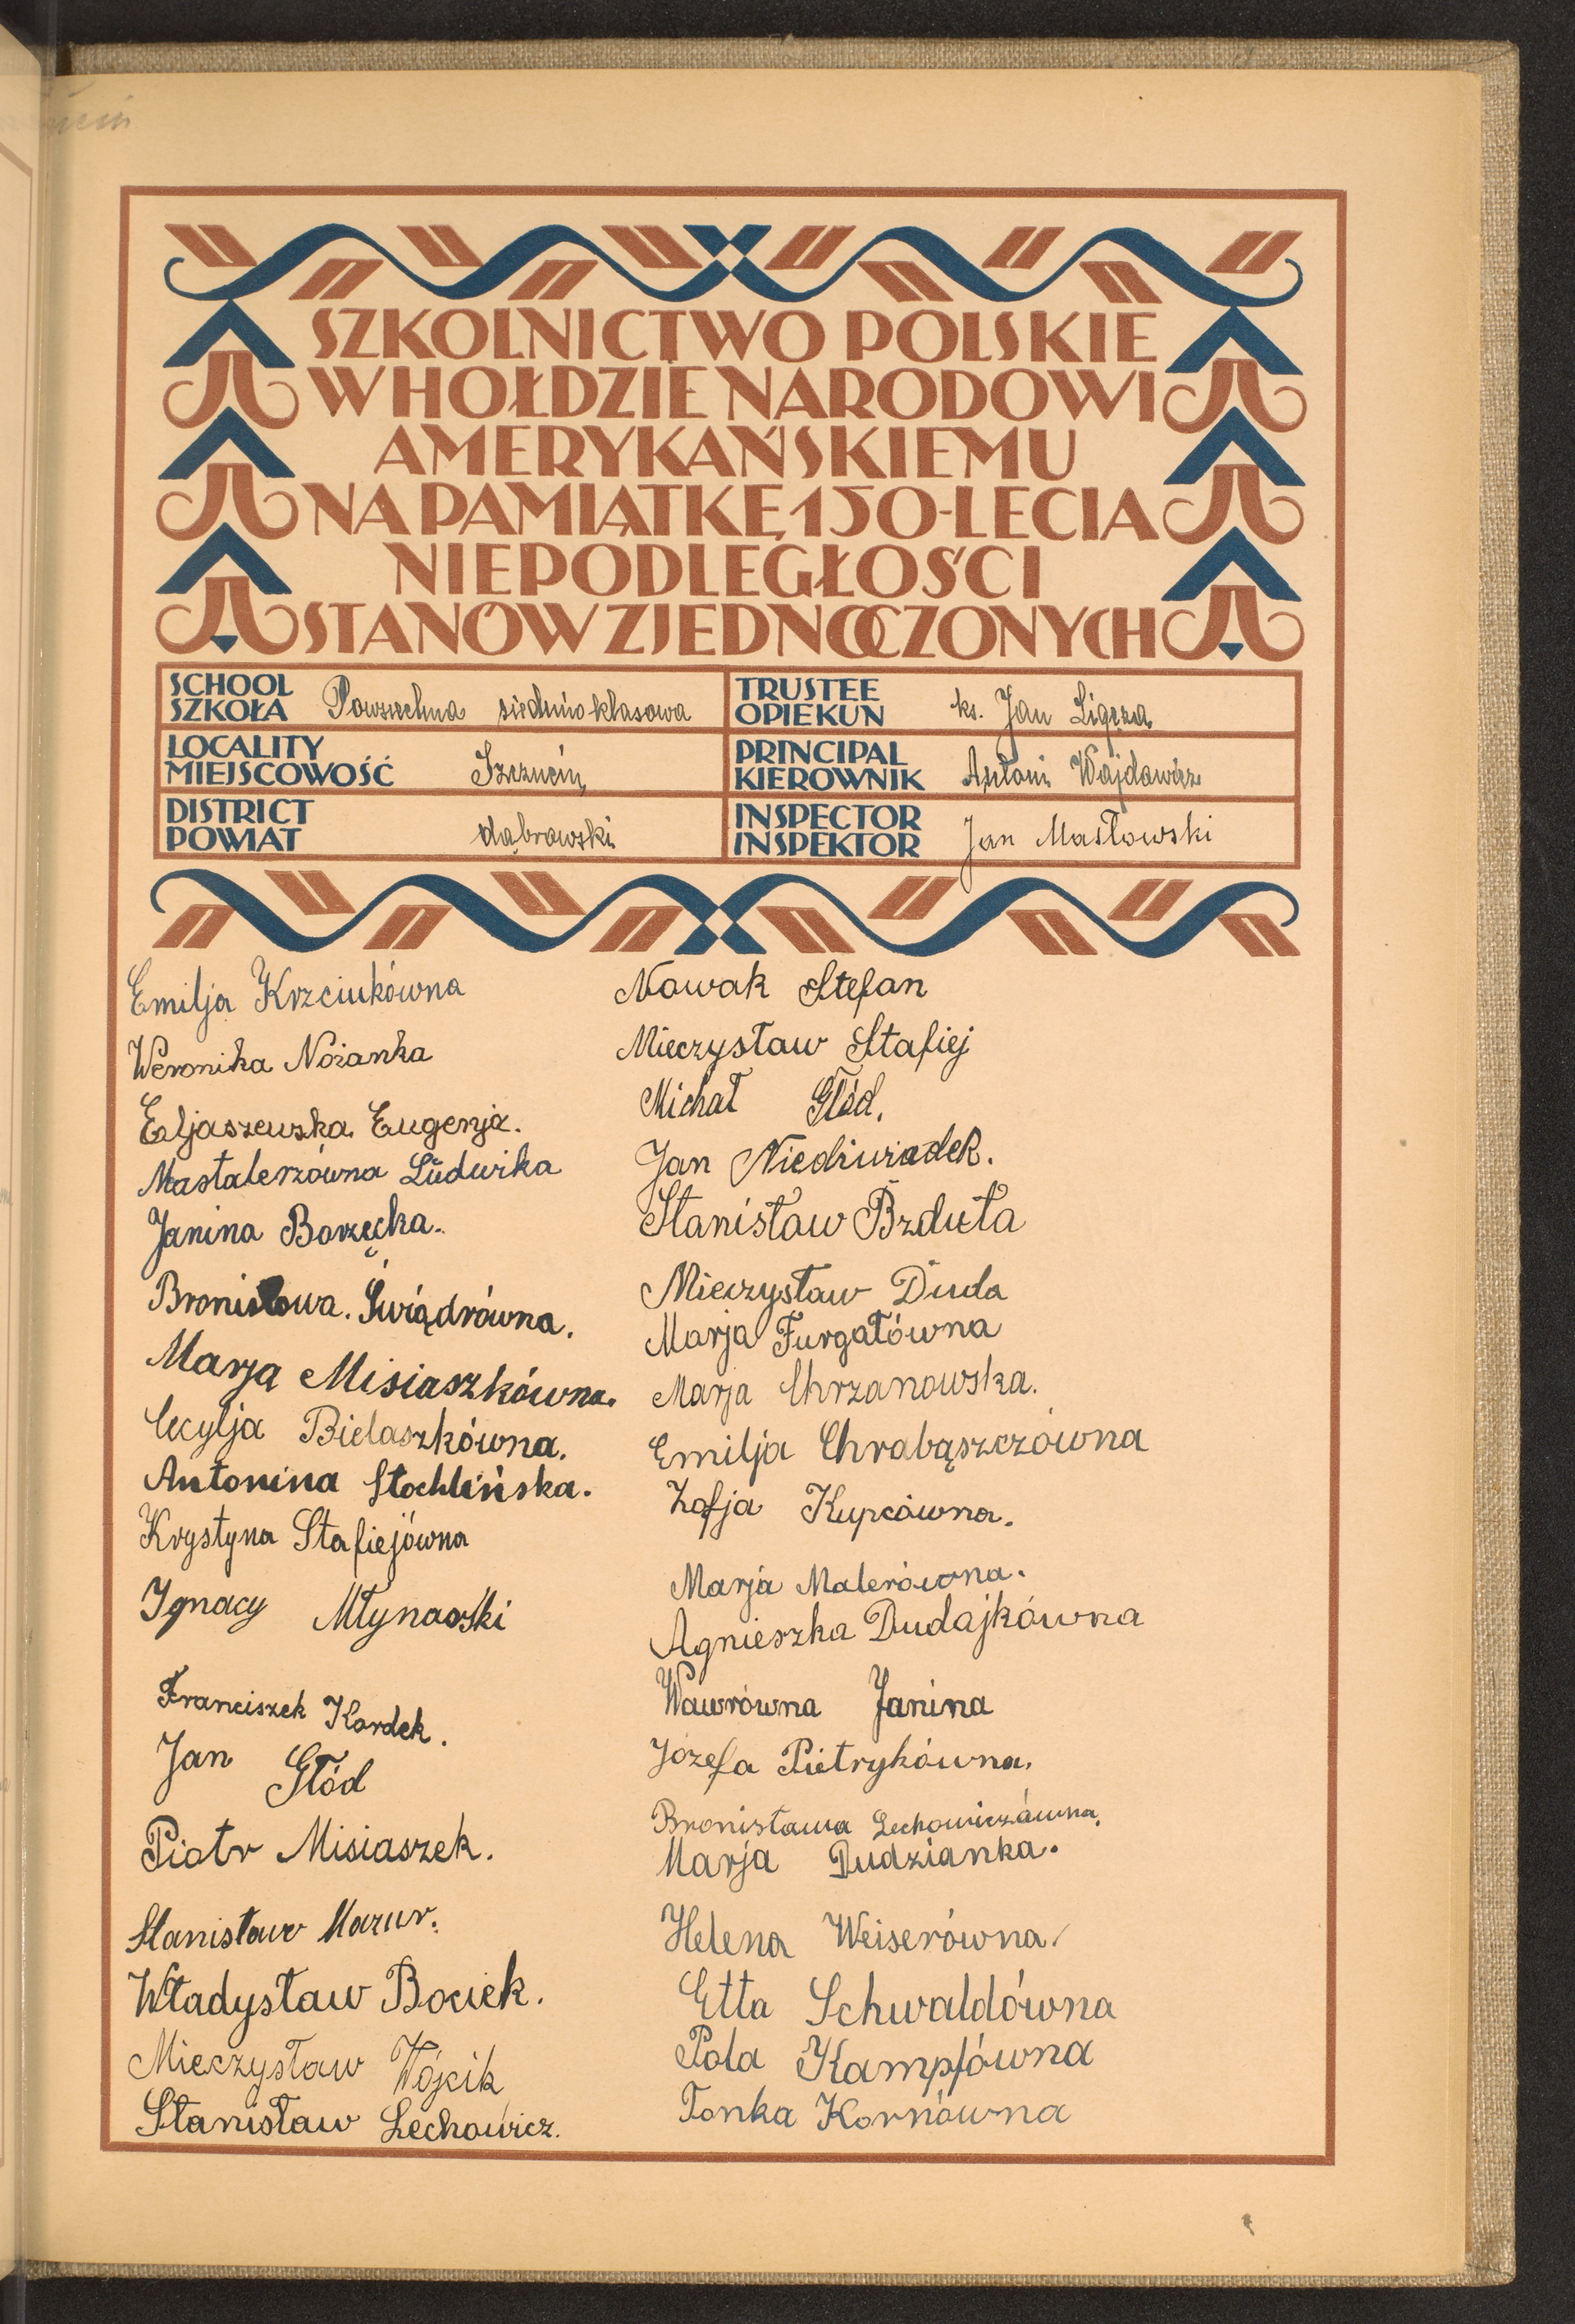 SZKOLNICTWO POLSKIE
W HOŁDZIE NARODOWI
AMERYKAŃSKIEMU
NA PAMIĄTKĘ 150-LECIA
NIEPODLEGŁOŚCI
STANÓW ZJEDNOCZONYCH
SCHOOL
SZKOŁA Powszechna siedmioklasowa
TRUSTEE
OPIEKUN ks. Jan Ligęza
LOCALITY
MIEJSCOWOŚĆ Szczucin
PRINCIPAL
KIEROWNIK Antoni Wajdowicz
DISTRICT
POWIAT dąbrowski
INSPECTOR
INSPEKTOR Jan Masłowski
Emilja Krzciukówna
Weronika Nożanka
Eljaszewska Eugenja.
Mastalerzówna Ludwika
Janina Borzęcka.
Bronisława. Świądrówna.
Marja Misiaszkówna.
Cecylja Bielaszkówna.
Antonina Stochlińska.
Krystyna Stafiejówna
Ignacy Młynarski
Franciszek Kordek.
Jan Głód
Piotr Misiaszek.
Stanisław Mazur.
Władysław Bociek.
Mieczysław Wójcik
Stanisław Lechowicz.
Nowak Stefan
Mieczysław Stafiej
Michał Głód.
Jan Niedźwiadek.
Stanisław Bzduła
Mieczysław Duda
Marja Furgałówna
Marja Chrzanowska.
Emilja Chrabąszczówna
Zofja Kupcówna.
Marja Malerówna.
Agnieszka Dudajkówna
Wawrówna Janina
Józefa Pietrykówna.
Bronisława Lechowiczówna.
Marja Dudzianka.
Helena Weiserówna.
Etta Schwaldówna
Pola Kampfówna
Tonka Kornówna